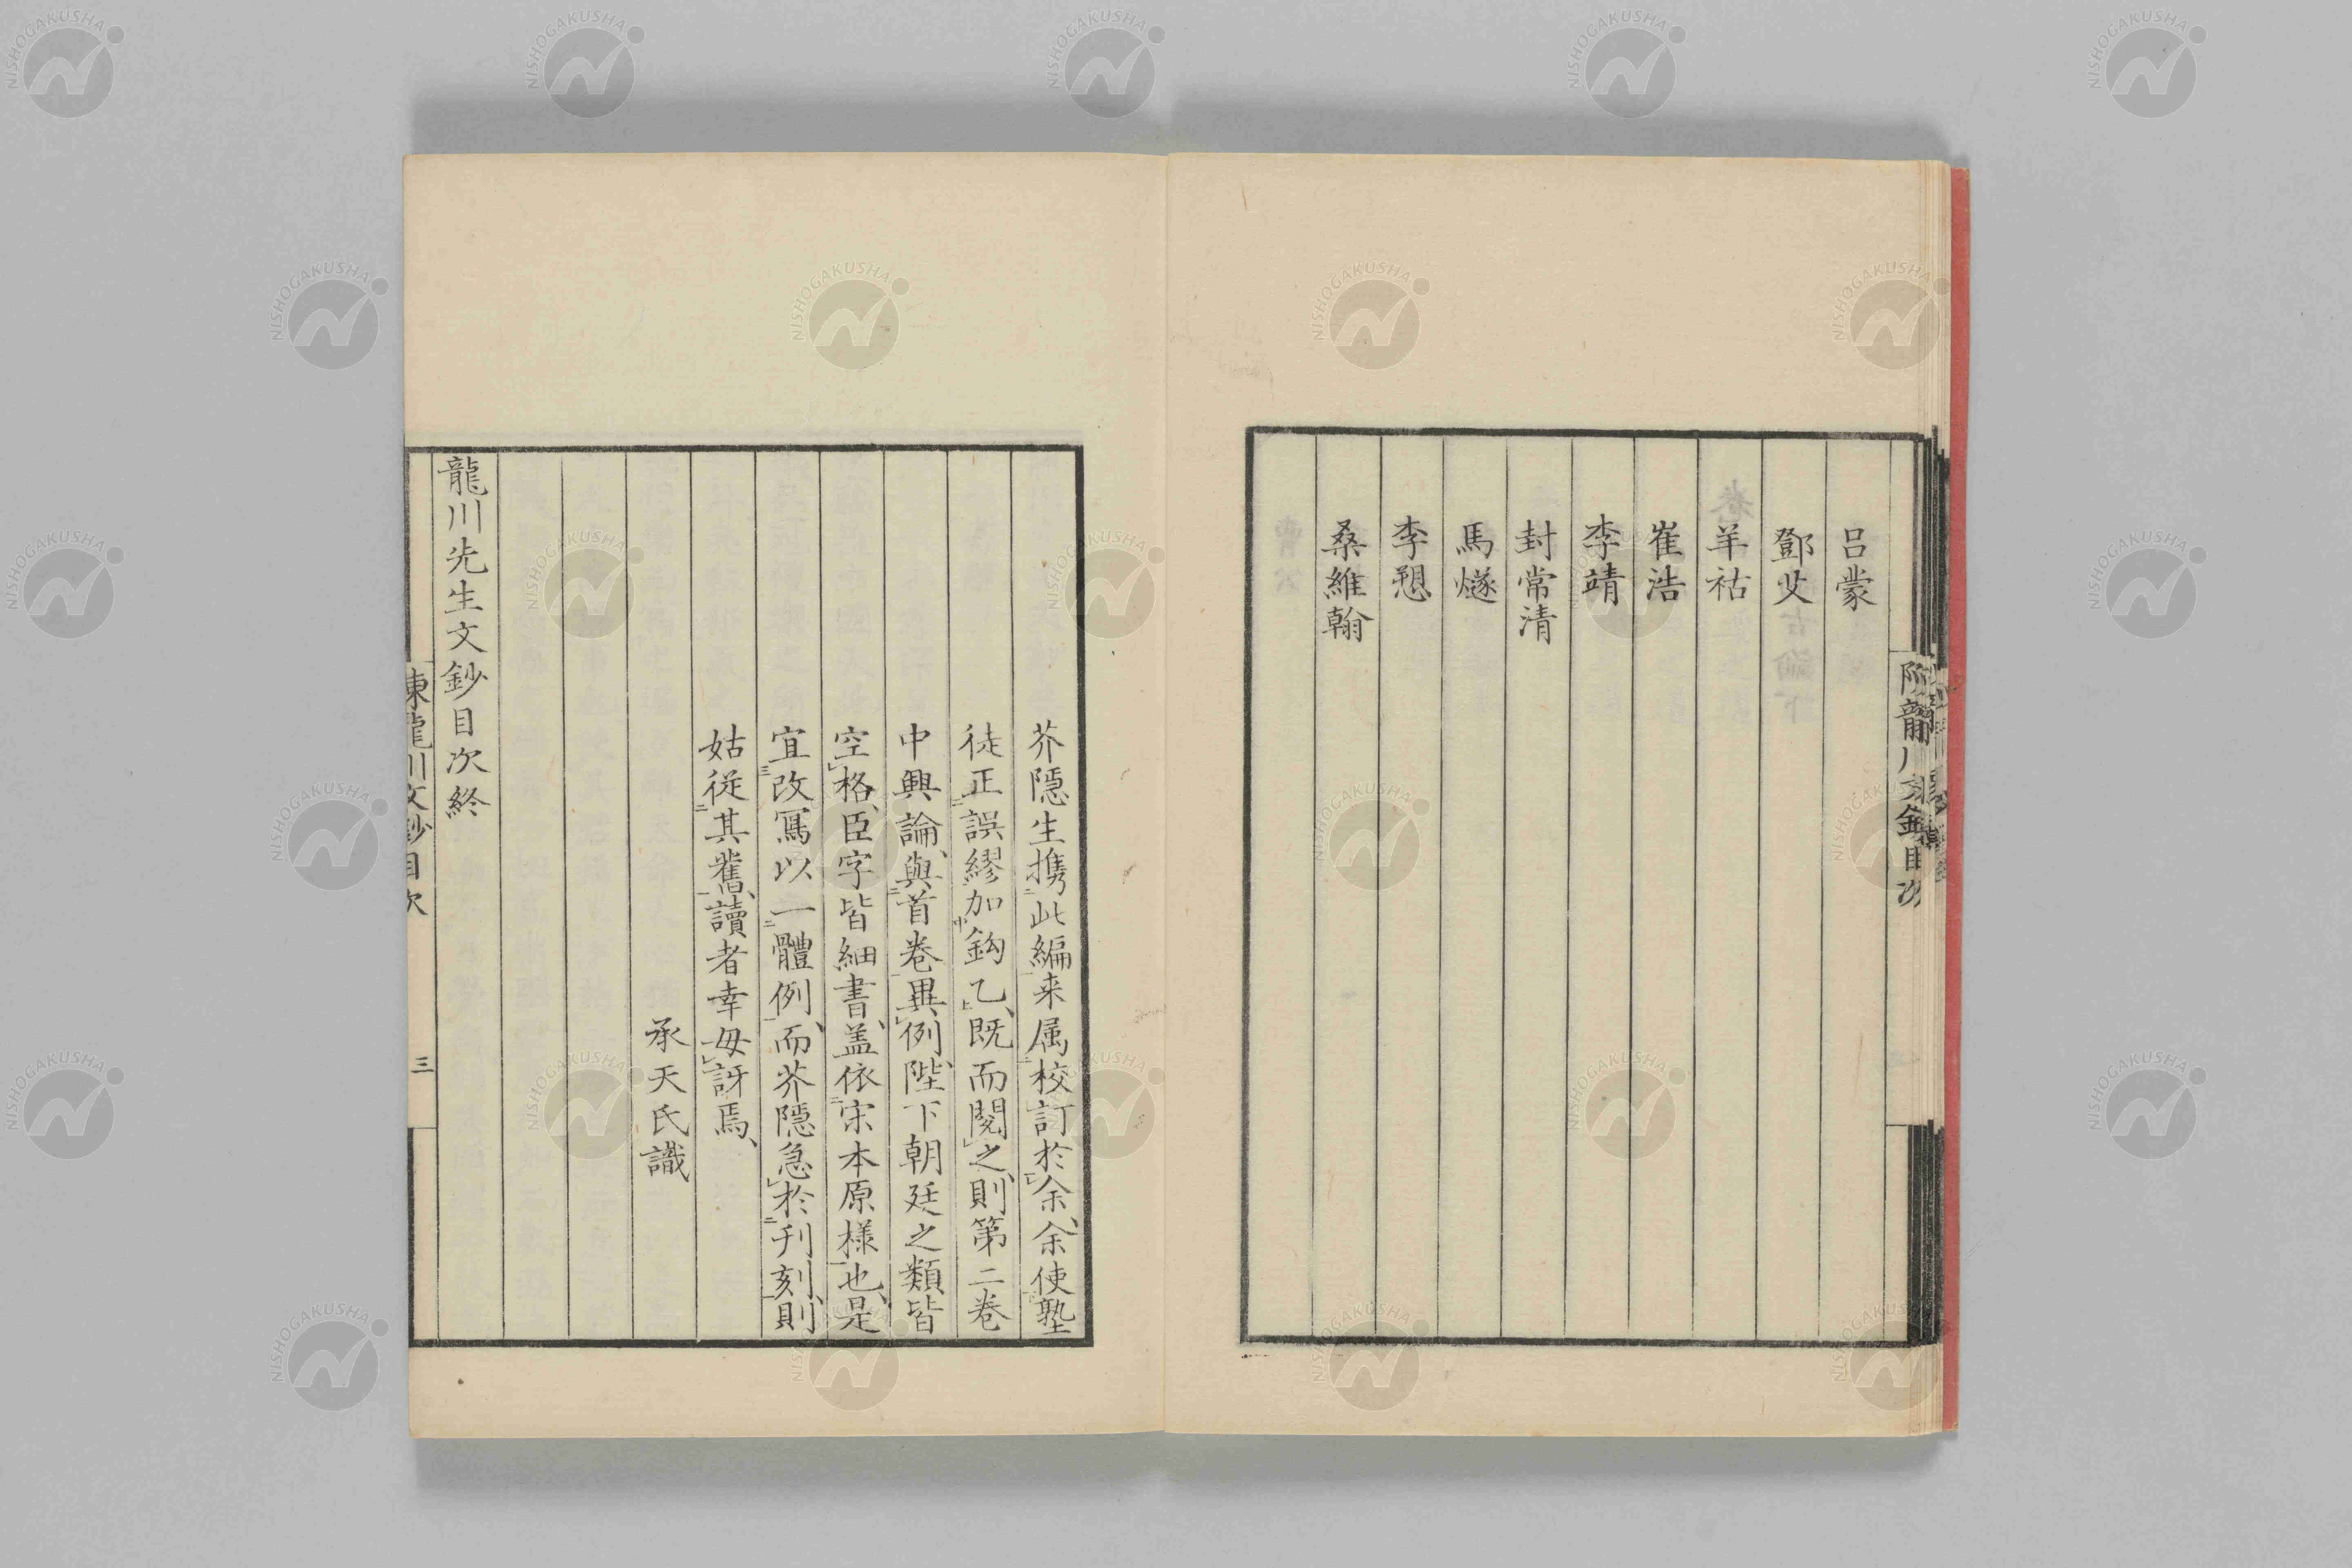 呂蒙
鄧艾
羊祜
崔浩
李靖
封常清
馬燧
李愬
桑維翰
芥隱生携此編来属校訂於余、余使塾
徒正誤繆加鈎乙、既而閱之、則第二卷
中興論、與首卷異例、陛下朝廷之類皆
空格、臣字皆細書、盖依宋本原樣也、是
宜改寫以一體例、而芥隱急於刋刻、則
姑從其舊、讀者幸毋訝焉、
承天氏識
龍川先生文鈔目次終
陳龍川文鈔目次
三
NISHOGAKUSHA